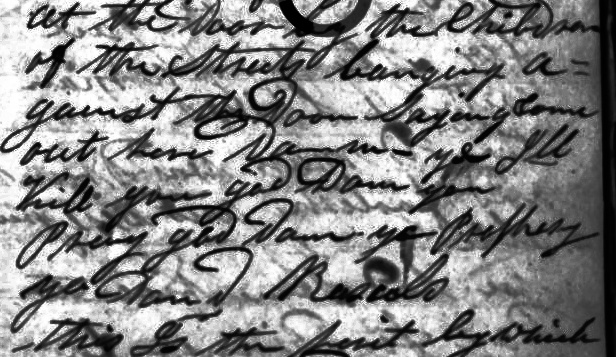 at the Doon by the Children
of the Streets banging a=
gainst the Doon Saying Come
out here Damn ye Ill
Kill you god Dam you
god Dam ye Prophesy
ye Dam d Rascols
this Is the sperit by which